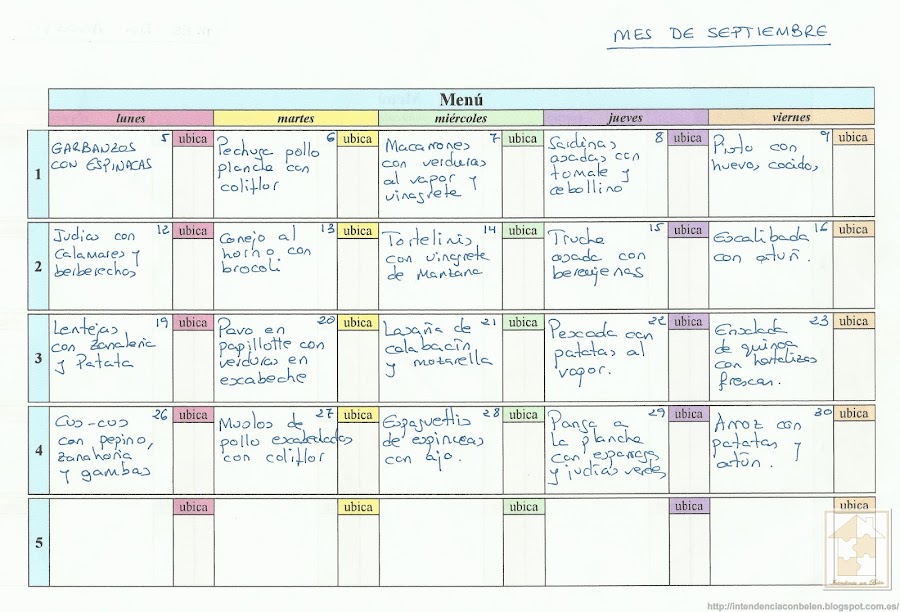 MES DE SEPTIEMBRE
Menú
lunes martes miércoles jueves viernes
1
5 ubica
GARBANZOS
CON ESPINACAS
6 ubica
Pechuga pollo
plancha con
coliflor
7 ubica
Macarrones
con verduras
al vapor y
vinagreta
8 ubica
Sardinas
asadas con
tomate y
cebollino
9 ubica
Pisto con
huevos cocidos
2
12 ubica
Judias con
Calamares y
berberechos
13 ubica
Conejo al
horno con
brocoli
14 ubica
Tortelinis
con vinagreta
de Manzana
15 ubica
Trucha
asada con
berenjenas
16 ubica
Escalibada
con atún.
3
19 ubica
Lentejas
con zanahoria
y Patata
20 ubica
Pavo en
papillotte con
verduras en
escabeche
21 ubica
Lasaña de
calabacín
y mozarella
22 ubica
Pescado con
patatas al
vapor.
23 ubica
Ensalada
de quinoa
con hortalizas
frescas.
4
26 ubica
Cus-cus
con pepino,
zanahoria
y gambas
27 ubica
Muslos de
pollo escabechados
con coliflor
28 ubica
Espaguettis
de espinacas
con ajo.
29 ubica
Panga a
la plancha
con esparragos
y judías verdes
30 ubica
Arroz con
patatas y
atún.
5
ubica ubica ubica ubica ubica
Intendencia con Belén
http://intendenciaconbelen.blogspot.com.es/